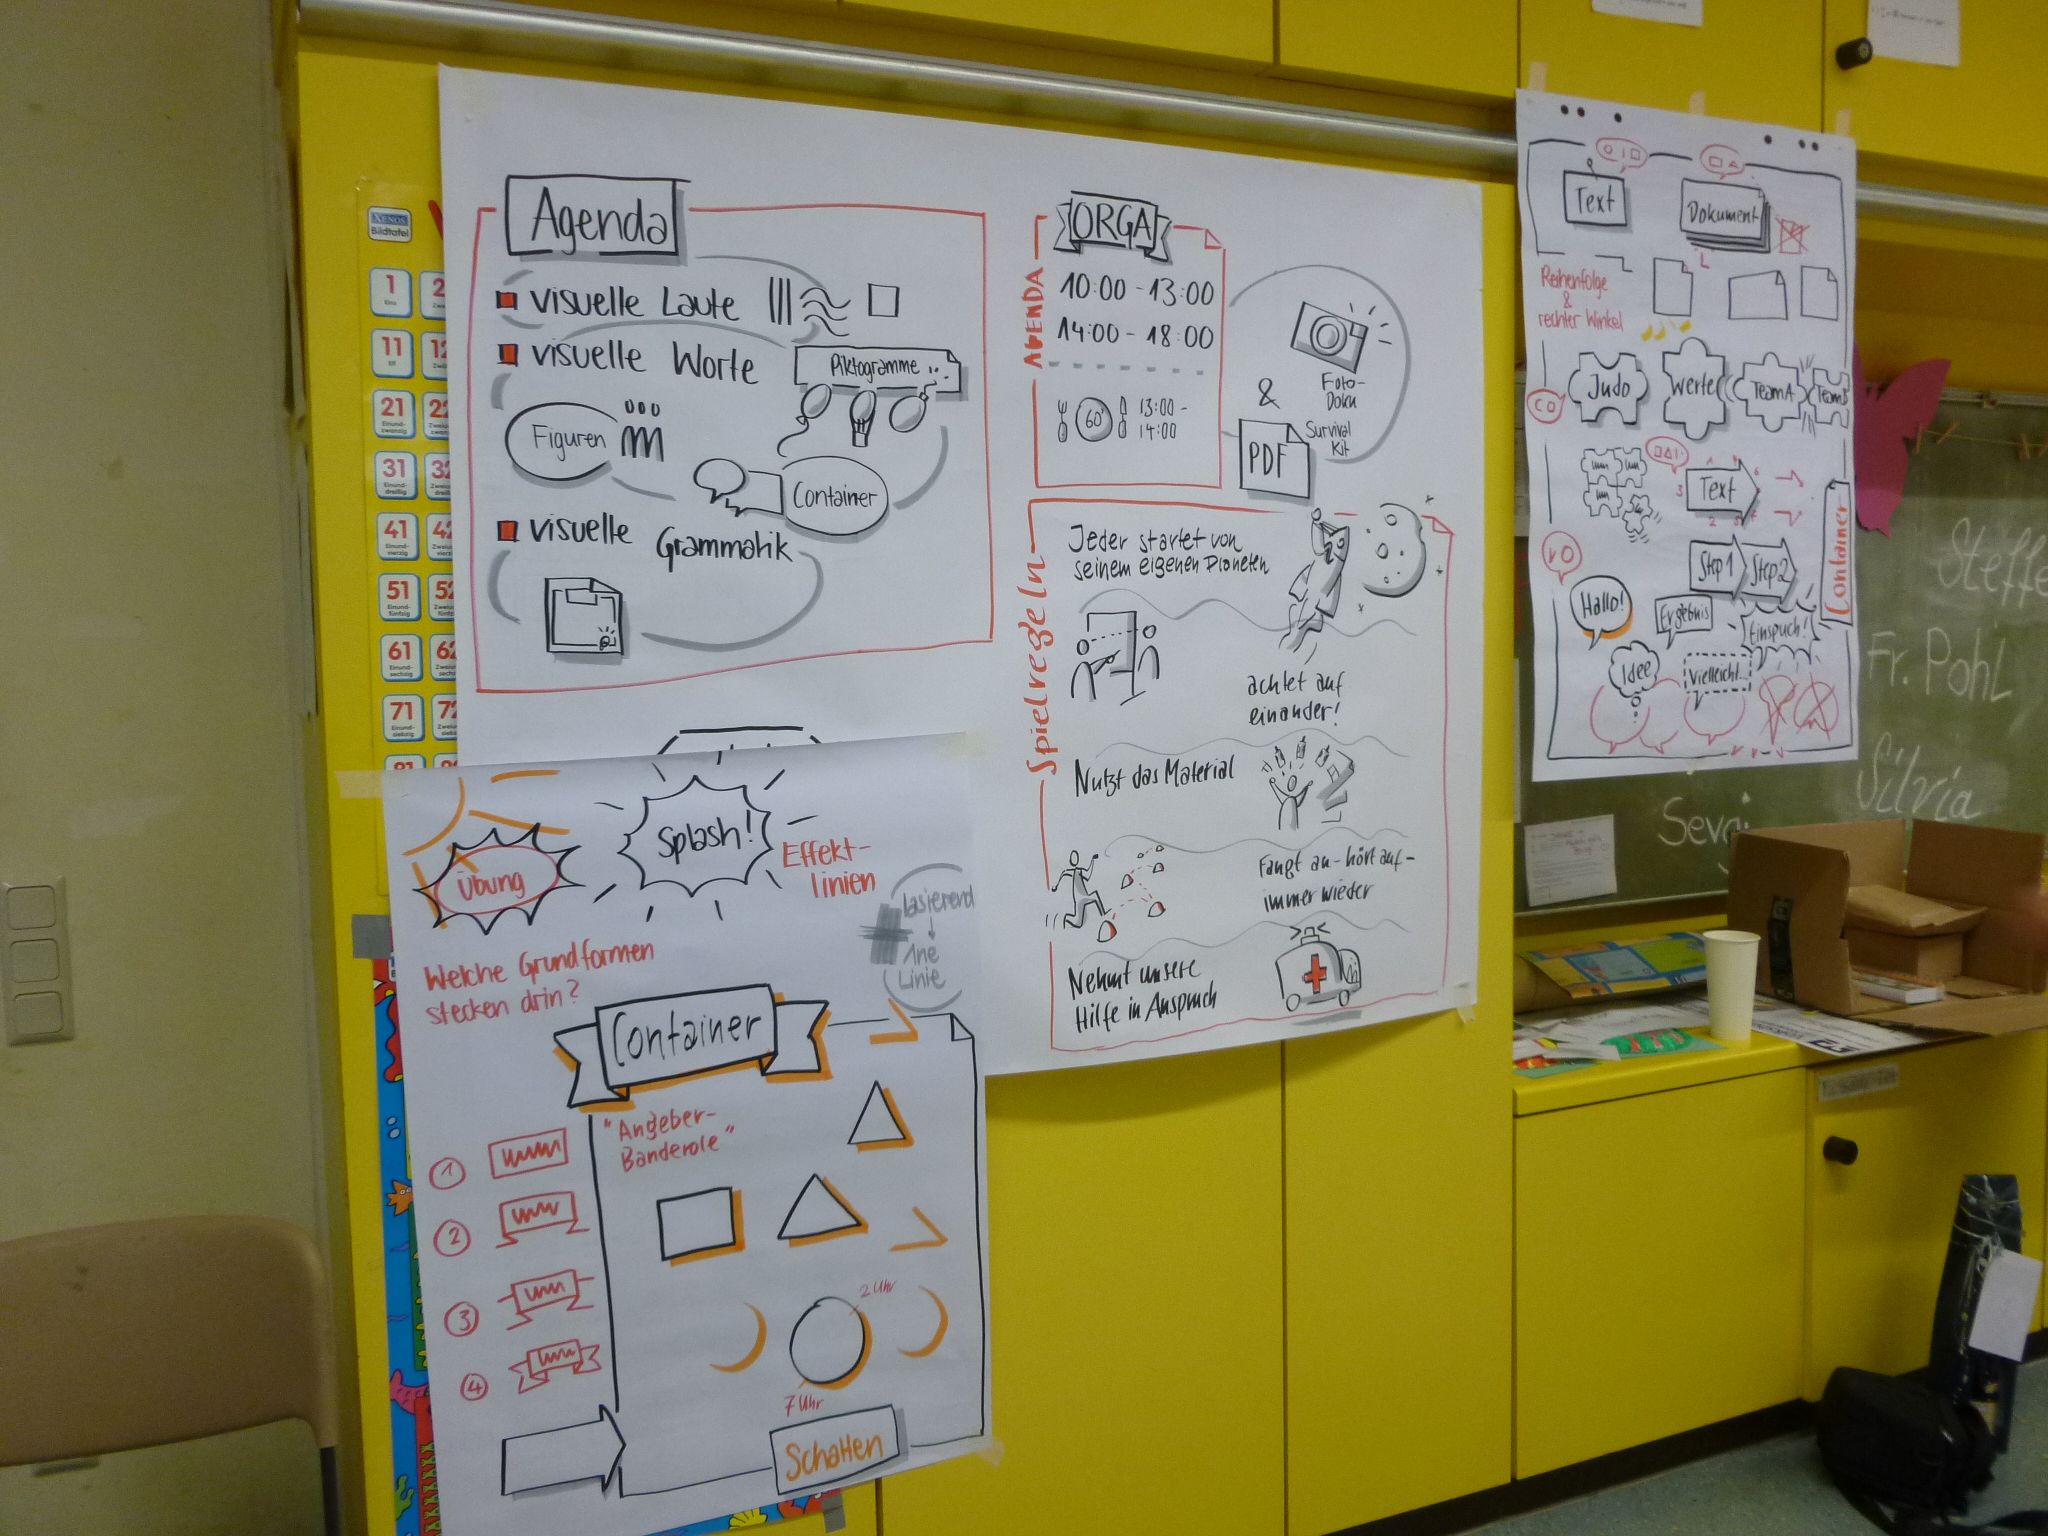 Agenda
visuelle Laute
visuelle Worte
Piktogramme
Figuren
Container
visuelle Grammatik
ORGA
AGENDA
10:00 - 13:00
14:00 - 18:00
60'
13:00 -
14:00
&
Foto-
Doku
Survival
Kit
PDF
Spielregeln
Jeder startet von
seinem eigenen Planeten
achtet auf
einander!
Nutzt das Material
Fangt an - hört auf -
immer wieder
Nehmt unsere
Hilfe in Anspruch
Übung
Splash!
Effekt-
linien
lasierend
Linie
Welche Grundformen
stecken drin?
Container
"Angeber-
Banderole"
1
2
3
4
2 Uhr
7 Uhr
Schatten
Text
Dokument
Reihenfolge
&
rechter Winkel
Judo
Werte
Team A
Team B
Text
Step 1
Step 2
Container
Hallo!
Ergebnis
Einspuch!
Idee
Vielleicht...
Steffe
Fr. Pohl,
Silvia
Sevgi
XENOS
Bildtafel
1
Eins
11
Elf
21
Einund-
zwanzig
31
Einund-
dreißig
41
Einund-
vierzig
51
Einund-
fünfzig
61
Einund-
sechzig
71
Einund-
siebzig